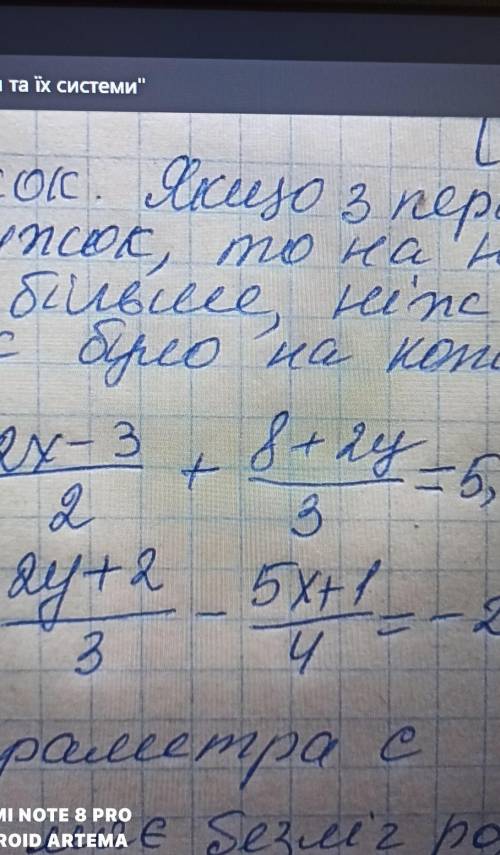 и та їх системи"
ок. Якщо з пер
ужок, то на н
більше, ніж
було на кож
2x-3/2 + 8+2y/3 = 5,
2y+2/3 - 5x+1/4 = -2
раметра с
MI NOTE 8 PRO
безліч ро
ROID ARTEMA